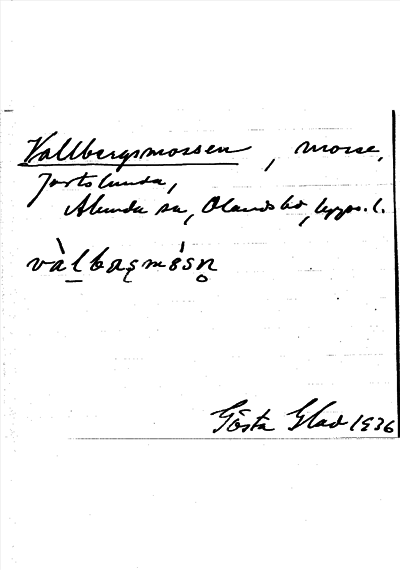 Vallbergsmossen, mosse,
Jortslunda,
Alunda sn, Olands hd, Upps. l.
vàl̠baȿmósn̥
Gösta Glad 1936